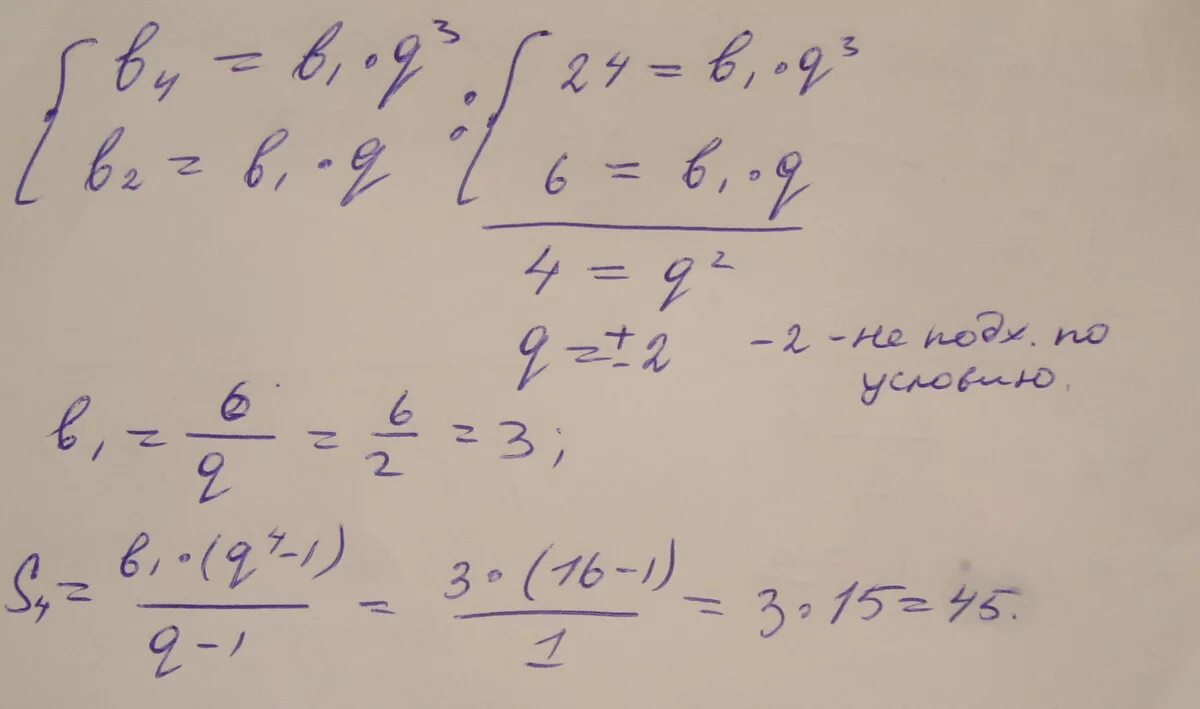 { в₄ = в₁ · q³ : { 24 = в₁ · q³
в₂ = в₁ · q 6 = в₁ · q
4 = q²
q = ± 2 -2 - не подх. по
условию.
в₁ = 6/q = 6/2 = 3;
S₄ = в₁·(q⁴-1)/q-1 = 3·(16-1)/1 = 3·15 = 45.